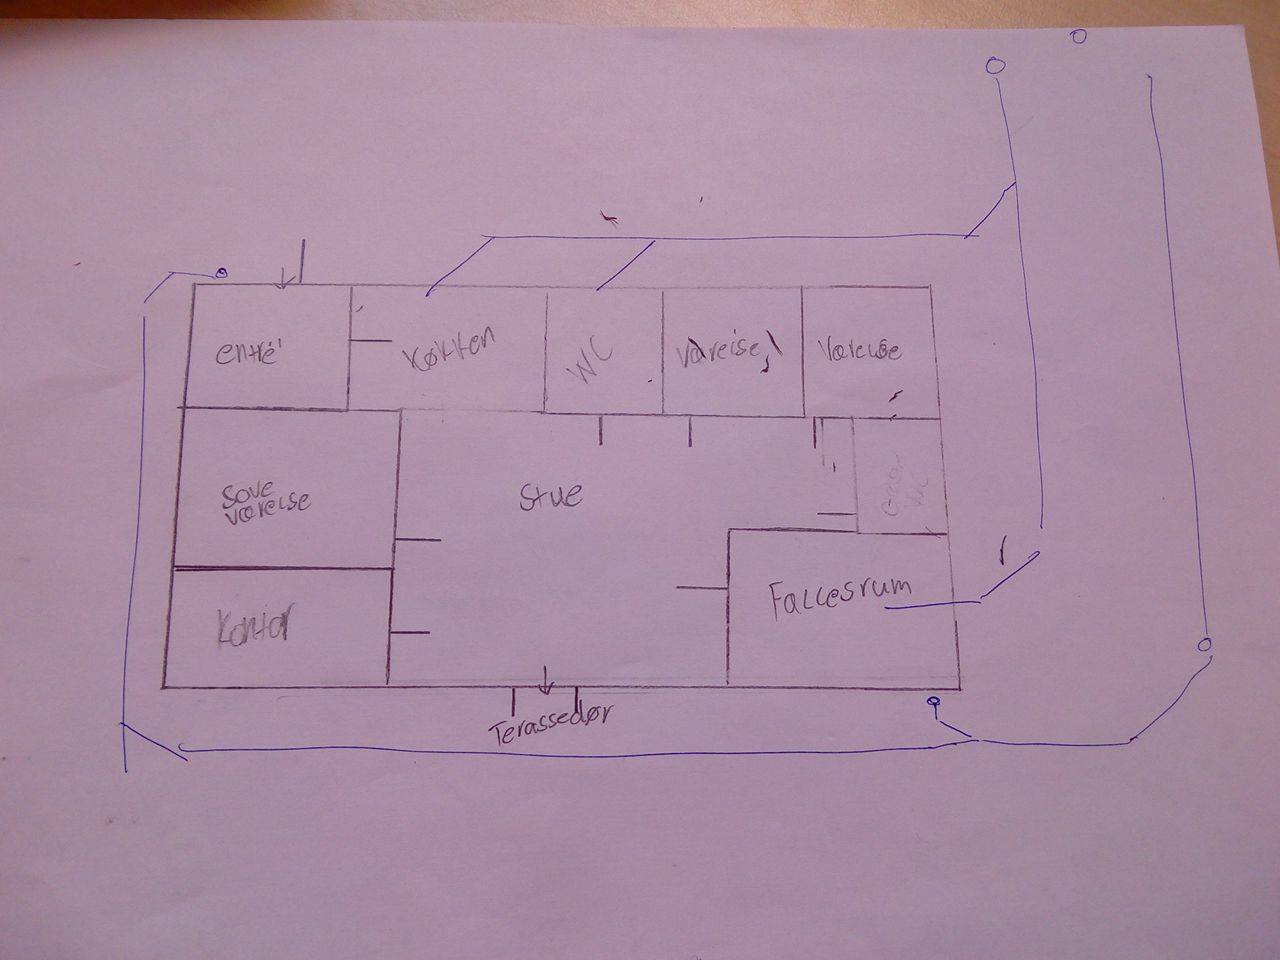 entré
Køkken
WC
Værelse
Værelse
Sove
værelse
Stue
WC
Kontor
Fallesrum
Terassedør